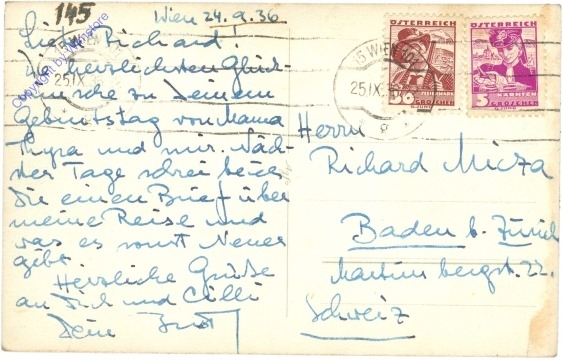 145
Wien 24.9.36
Lieber Richard!
Die herzlichsten Glück-
wünsche zu Deinem
Geburtstag von Mama
Papa und mir. Näch-
ster Tage schreibe ich
Dir einen Brief über
meine Reise und
was es sonst Neues
gibt.
Herzliche Grüße
an Dich und Cilli
Dein
ÖSTERREICH
30
GROSCHEN
ÖSTERREICH
KÄRNTEN
5
GROSCHEN
15 WIEN
25 IX
Herrn
Richard
Baden b. Zürich
Martinsbergst. 22.
Schweiz